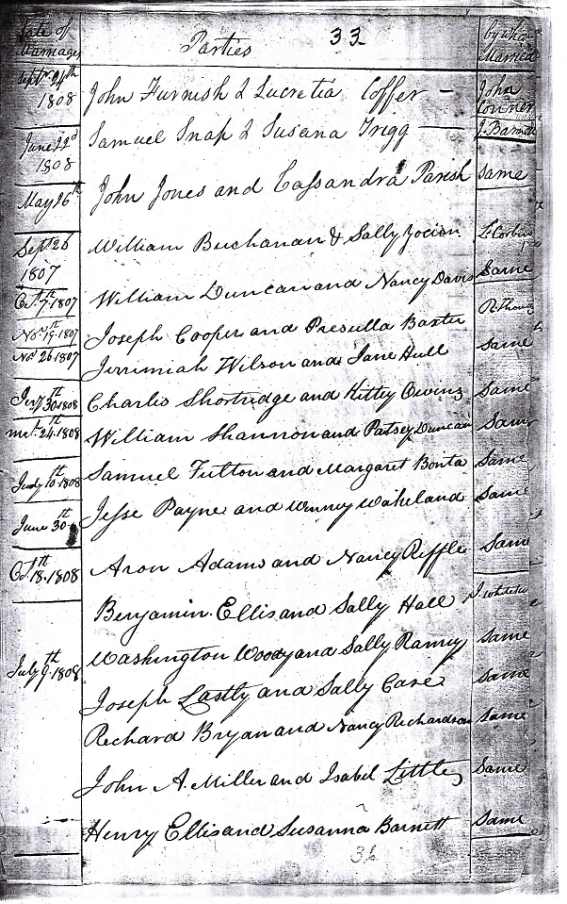 Date of Marriage Parties 33 by who Married
Septr 24th 1808 John Furnish & Lucretia Coffer — John Conner
June 22d 1808 Samuel Snap & Susana Trigg — J. Barnett
May 26th John Jones and Cassandra Parish Same
Sept 26 1807 William Buchanan & Sally
Oct. 7th 1807 William Duncan and Nancy Davis Same
Nov. 19th 1807 Joseph Cooper and Presulla Baxter
Nov 26 1807 Jerrimiah Wilson and Jane Hull Same
Jany 30th 1808 Charles Shortridge and Kittey Owens Same
24th 1808 William Shannon and Patsey Duncan Same
10th 1808 Samuel Futton and Margaret Bonta Same
June 30th Jesse Payne and Winney Wakeland Same
Oct. 18th 1808 Aron Adams and Nancy Riffle Same
Benjamin Ellis and Sally Hall
Washington Woody and Sally Ramey Same
July 9th 1808 Joseph Lastly and Sally Cave Same
Richard Bryan and Nancy Richardson Same
John A. Miller and Isabel Little Same
Henry Ellis and Susanna Barnett Same